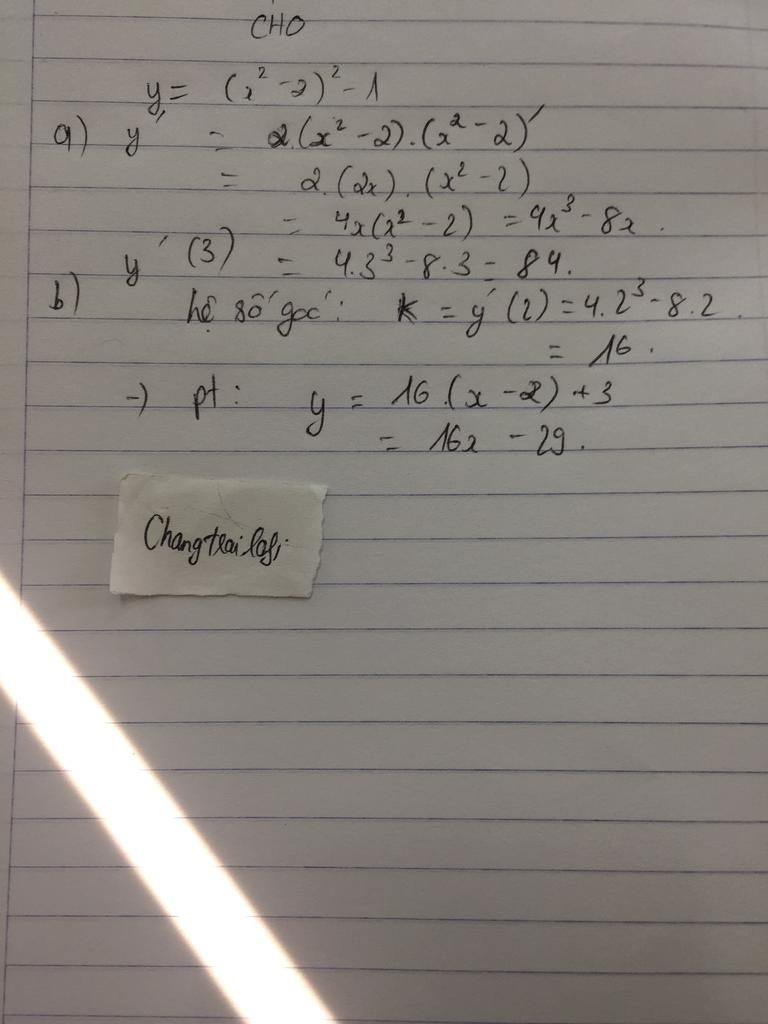 CHO
y = (x² - 2)² - 1
a) y' = 2.(x² - 2).(x² - 2)'
= 2.(2x).(x² - 2)
= 4x(x² - 2) = 4x³ - 8x.
y'(3) = 4.3³ - 8.3 = 84.
b) hệ số góc: k = y'(2) = 4.2³ - 8.2.
= 16.
→ pt: y = 16.(x - 2) + 3
= 16x - 29.